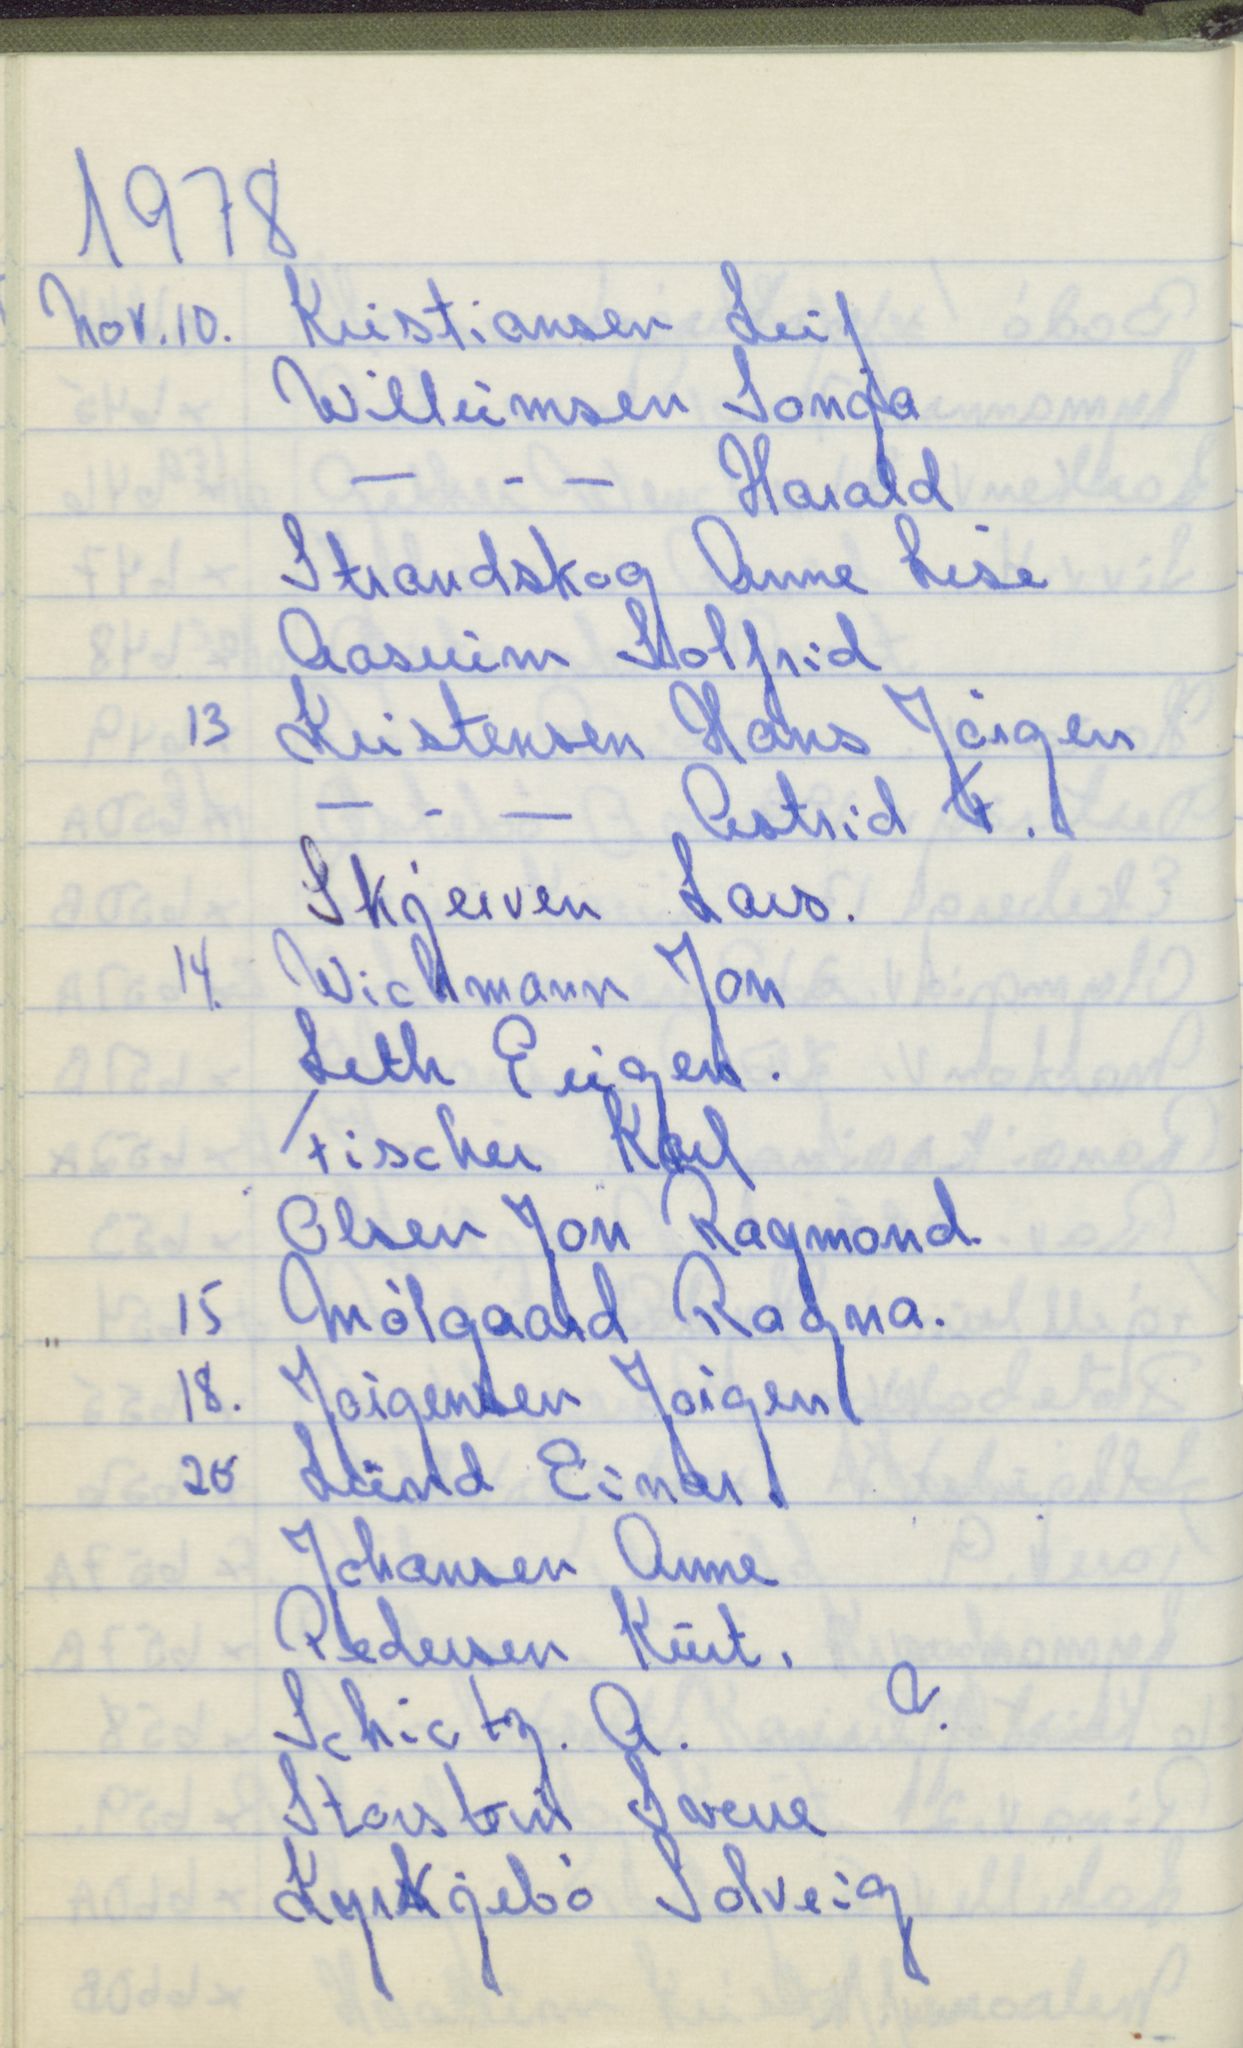 1978
Nov. 10. Kristiansen Leif
Willeimsen Sonja
— - — Harald
Strandskog Anne Lise
Aasheim Solfrid
13 Kristensen Hans Jörgen
— - — Astrid F.
Skjerven Lars.
14. Wichmann Jon
Leth Eirigen.
Fischer Karl
Olsen Jon Raymond
15 Mölgaard Ragna.
18. Jörgensen Jörgen
20 Lund Einar.
Johansen Anne
Pedersen Kurt.
Schiøtz. A. A.
Storstein Sverre
Kyrkjebö Solveig